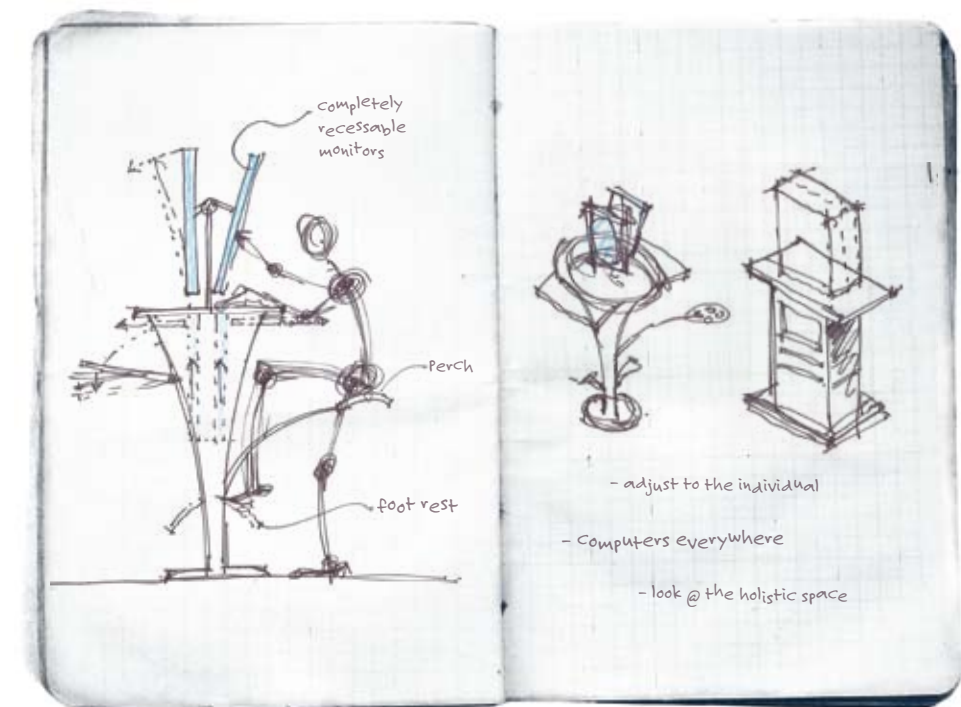 completely
recessable
monitors
Perch
foot rest
- adjust to the individual
- computers everywhere
- look @ the holistic space